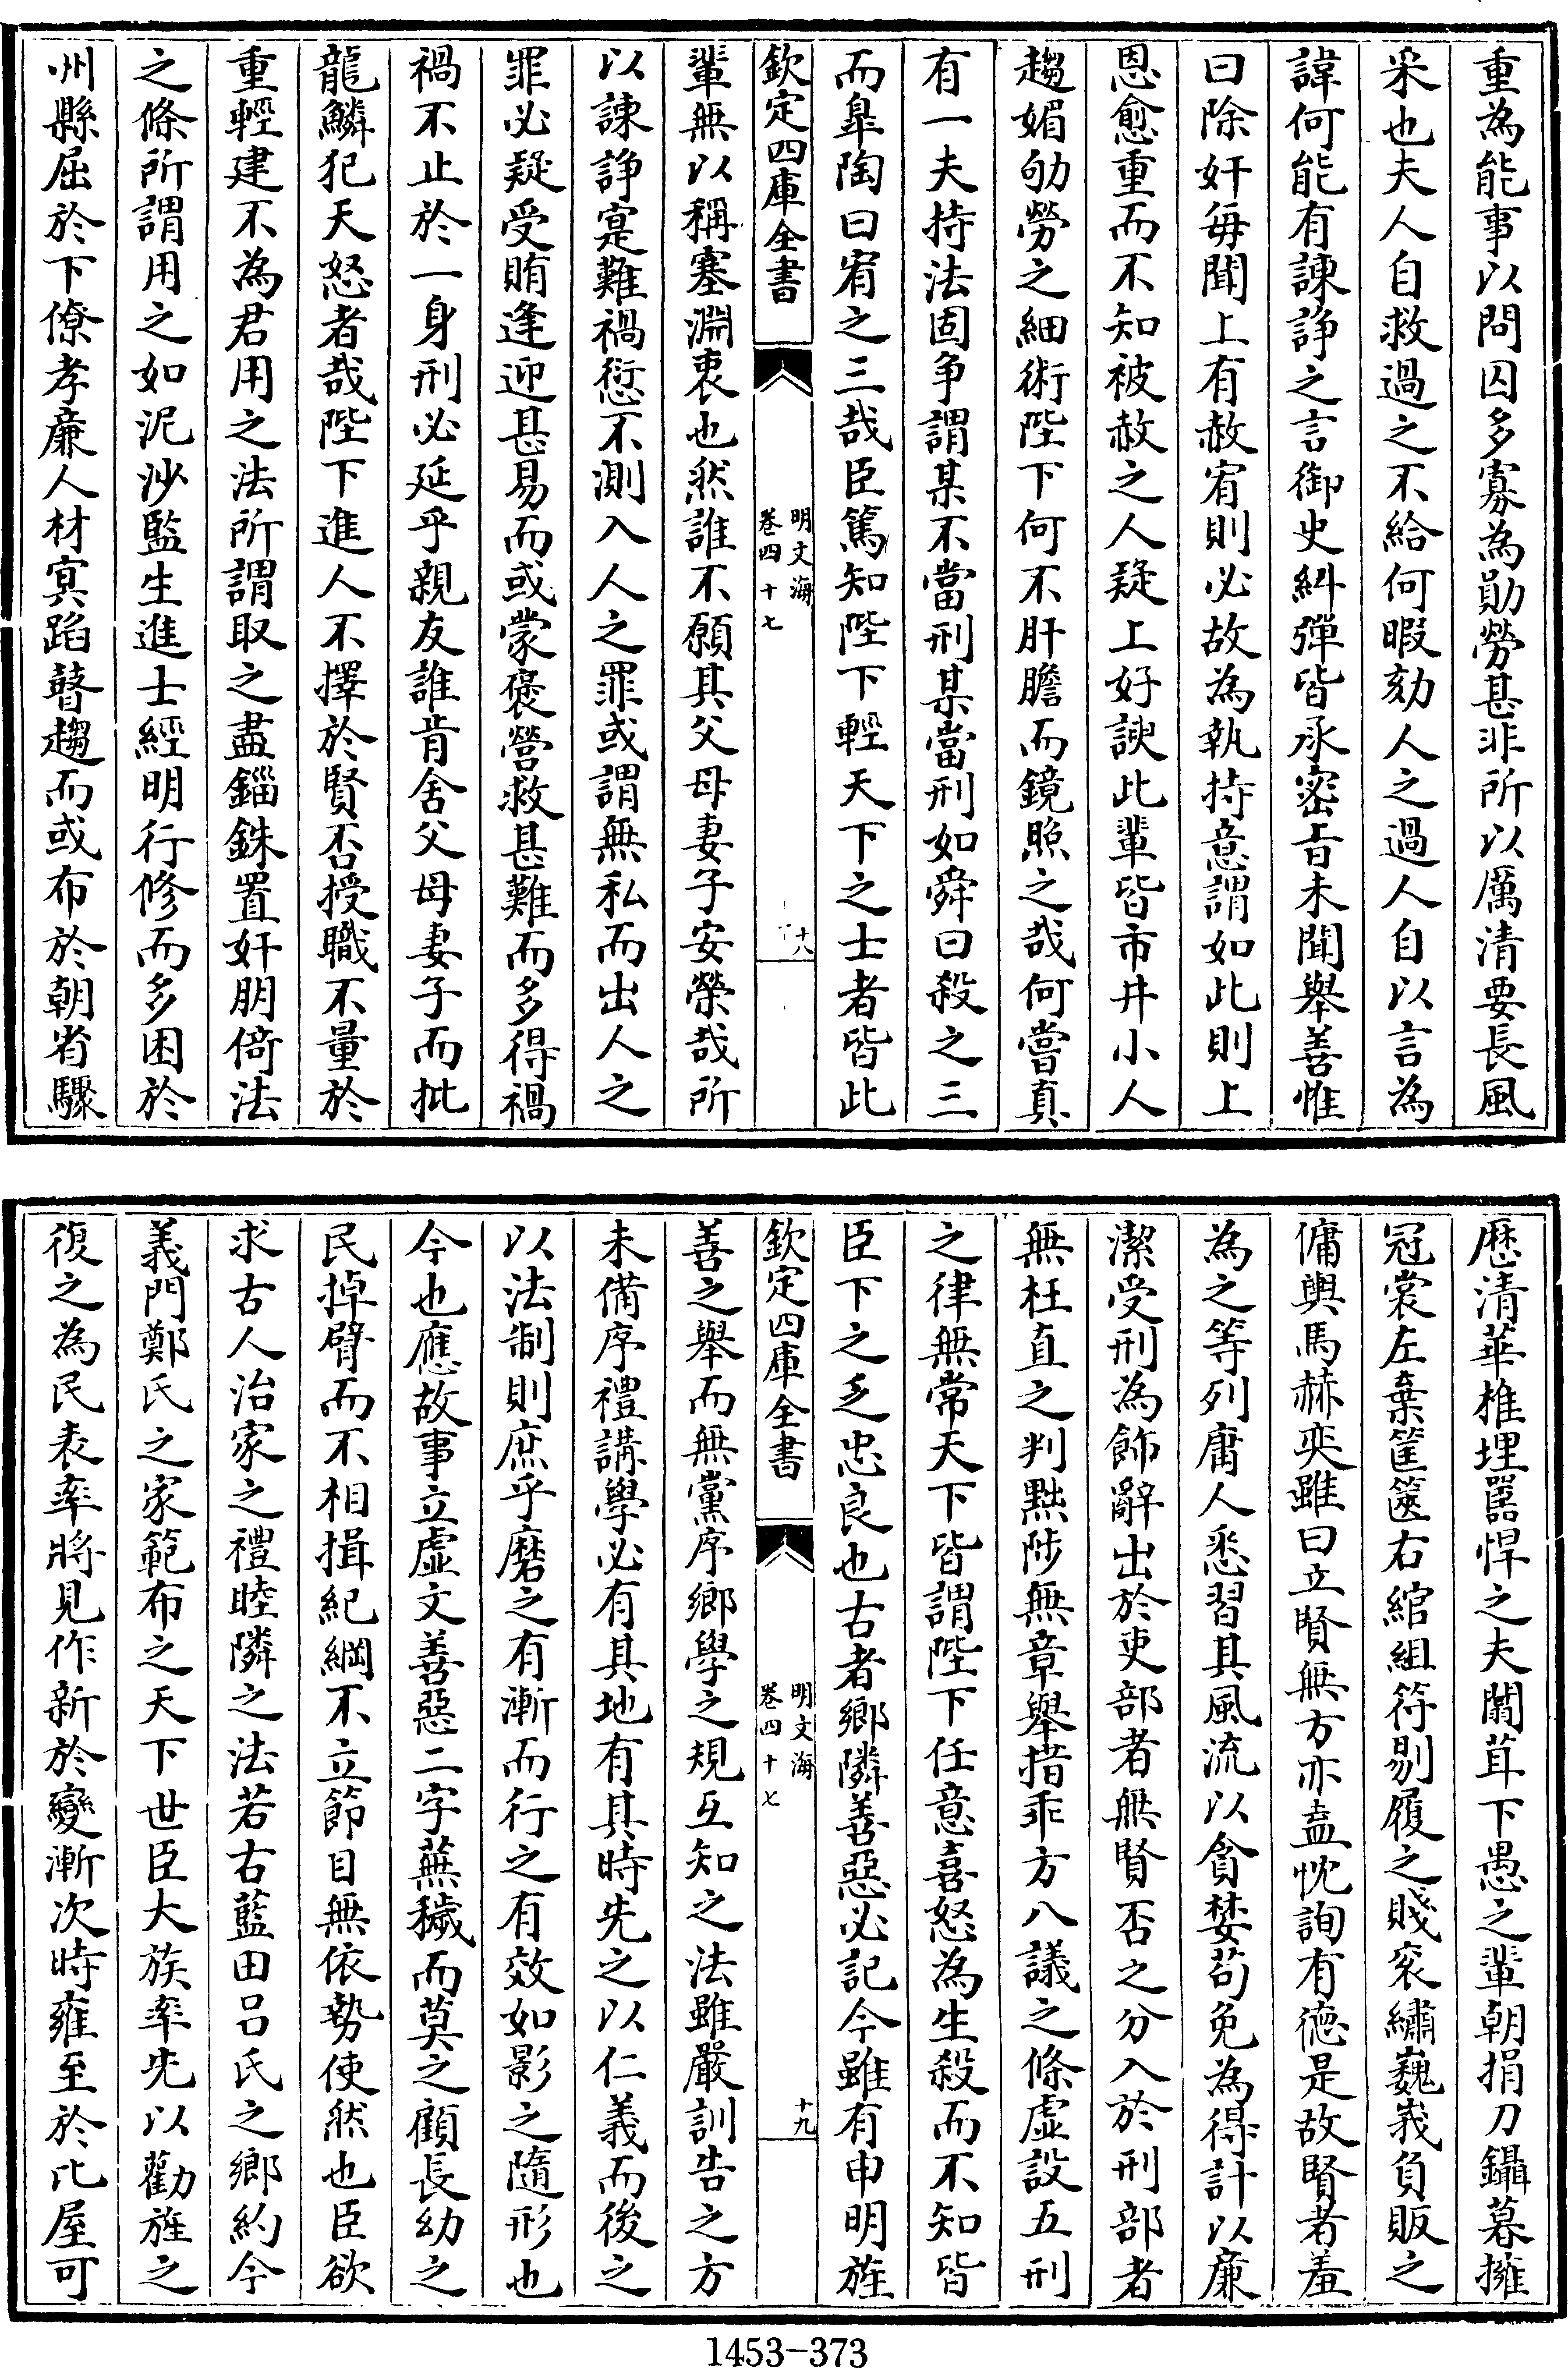 重為能事以問囚多寡為勛勞甚非所以厲清要長風
采也夫人自救過之不給何暇劾人之過人自以言為
諱何能有諫諍之言御史糾彈皆承密旨未聞舉善惟
曰除奸每聞上有赦宥則必故為執持意謂如此則上
恩愈重而不知被赦之人疑上好諛此輩皆市井小人
趨媚劬勞之細術陛下何不肝膽而鏡照之哉何嘗真
有一夫持法固争謂某不當刑某當刑如舜曰殺之三
而臯陶曰宥之三哉臣篤知陛下輕天下之士者皆此
欽定四庫全書
明文海
卷四十七
十八
輩無以稱塞淵衷也然誰不願其父母妻子安榮哉所
以諫諍寔難禍愆不測入人之罪或謂無私而出人之
罪必疑受賄逢迎甚易而或蒙褒營救甚難而多得禍
禍不止於一身刑必延乎親友誰肯舍父母妻子而批
龍鱗犯天怒者哉陛下進人不擇於賢否授職不量於
重輕建不為君用之法所謂取之盡錙銖置奸朋倚法
之條所謂用之如泥沙監生進士經明行修而多困於
州縣屈於下僚孝廉人材冥蹈瞽趨而或布於朝省驟
歷清華椎埋嚚悍之夫闒茸下愚之輩朝捐刀鑷暮擁
冠裳左棄筐篋右綰組符剔履之賤衮繡巍峩負販之
傭輿馬赫奕雖曰立賢無方亦盍忱詢有德是故賢者羞
為之等列庸人悉習其風流以貪婪苟免為得計以廉
潔受刑為飾辭出於吏部者無賢否之分入於刑部者
無枉直之判黜陟無章舉措乖方八議之條虛設五刑
之律無常天下皆謂陛下任意喜怒為生殺而不知皆
臣下之乏忠良也古者鄉隣善惡必記今雖有申明旌
欽定四庫全書
明文海
卷四十七
十九
善之舉而無黨序鄉學之規互知之法雖嚴訓告之方
未備序禮講學必有其地有其時先之以仁義而後之
以法制則庶乎磨之有漸而行之有效如影之隨形也
今也應故事立虛文善惡二字蕪穢而莫之顧長幼之
民掉臂而不相揖紀綱不立節目無依勢使然也臣欲
求古人治家之禮睦隣之法若右藍田呂氏之鄉約今
義門鄭氏之家範布之天下世臣大族率先以勸旌之
復之為民表率將見作新於變漸次時雍至於比屋可
1453-373